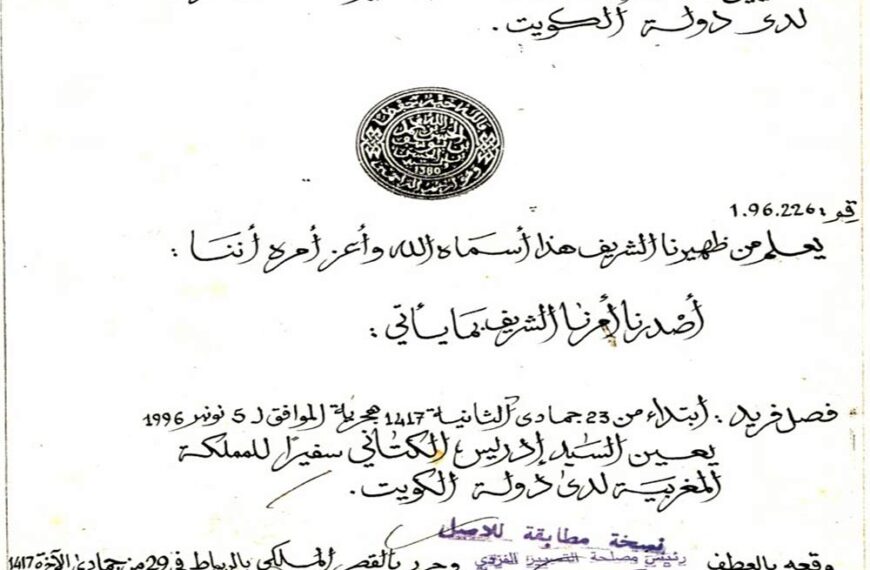 لدى دولة الكويت.
1380
رقم : 1.96.226
يعلم من ظهيرنا الشريف هذا أسماه الله وأعز أمره أننا :
أصدرنا أمرنا الشريف بما يأتي :
فصل فريد : ابتداء من 23 جمادى الثانية 1417 هجرية الموافق ل 5 نونبر 1996
يعين السيد إدريس الكتاني سفيرا للمملكة
المغربية لدى دولة الكويت.
نسخة مطابقة للاصل
رئيس مصلحة التسيير الفردي
وقعه بالعطف
وحرر بالقصر الملكي بالرباط في 29 من جمادى الآخرة 1417